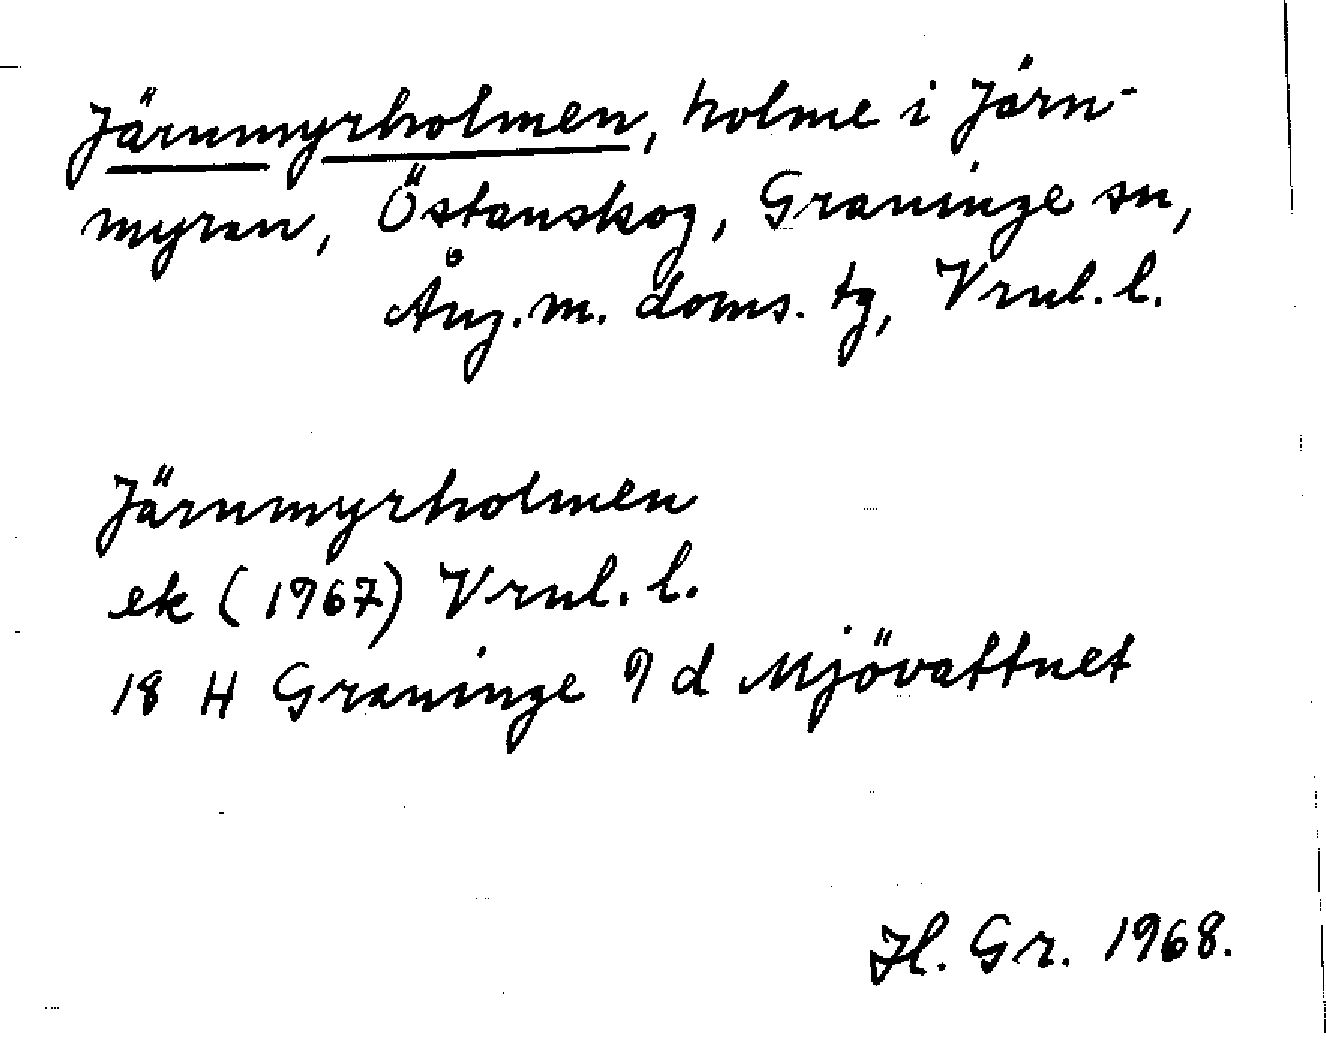 Järnmyrholmen, holme i Järn-
myran, Östanskog, Graninge sn,
Ång. m. doms. tg, Vrnl. l.
Järnmyrholmen
ek (1967) Vrnl. l.
18 H Graninge 9 d Mjövattnet
Hl. Gr. 1968.